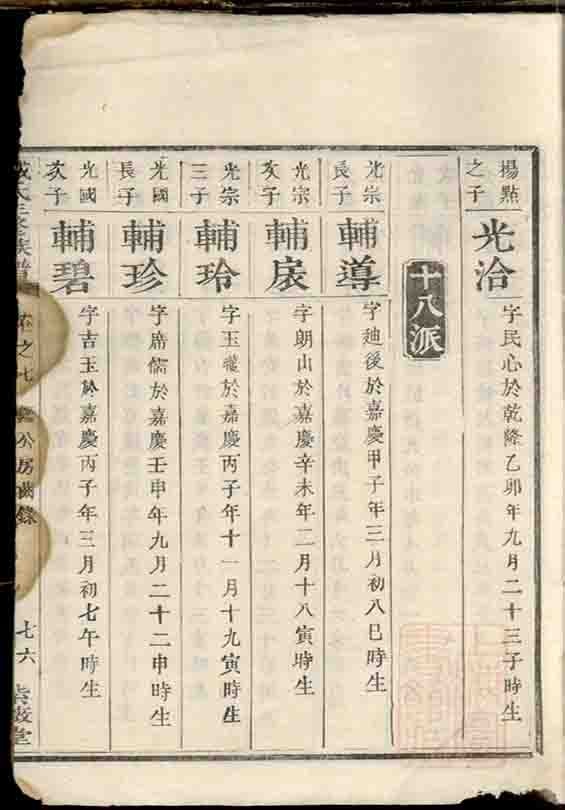 楊點
之子
光洽
字民心於乾隆乙卯年九月二十三子時生
十八派
光宗
長子
輔導
字廸後於嘉慶甲子年三月初八巳時生
光宗
次子
輔扆
字朗山於嘉慶辛未年二月十八寅時生
光宗
三子
輔玲
字玉於嘉慶丙子年十一月十九寅時生
光國
長子
輔珍
字席儒於嘉慶壬申年九月二十二申時生
光國
次子
輔碧
字吉玉於嘉慶丙子年三月初七午時生
氏三修族譜
卷之七
公房齒錄
七六
堂